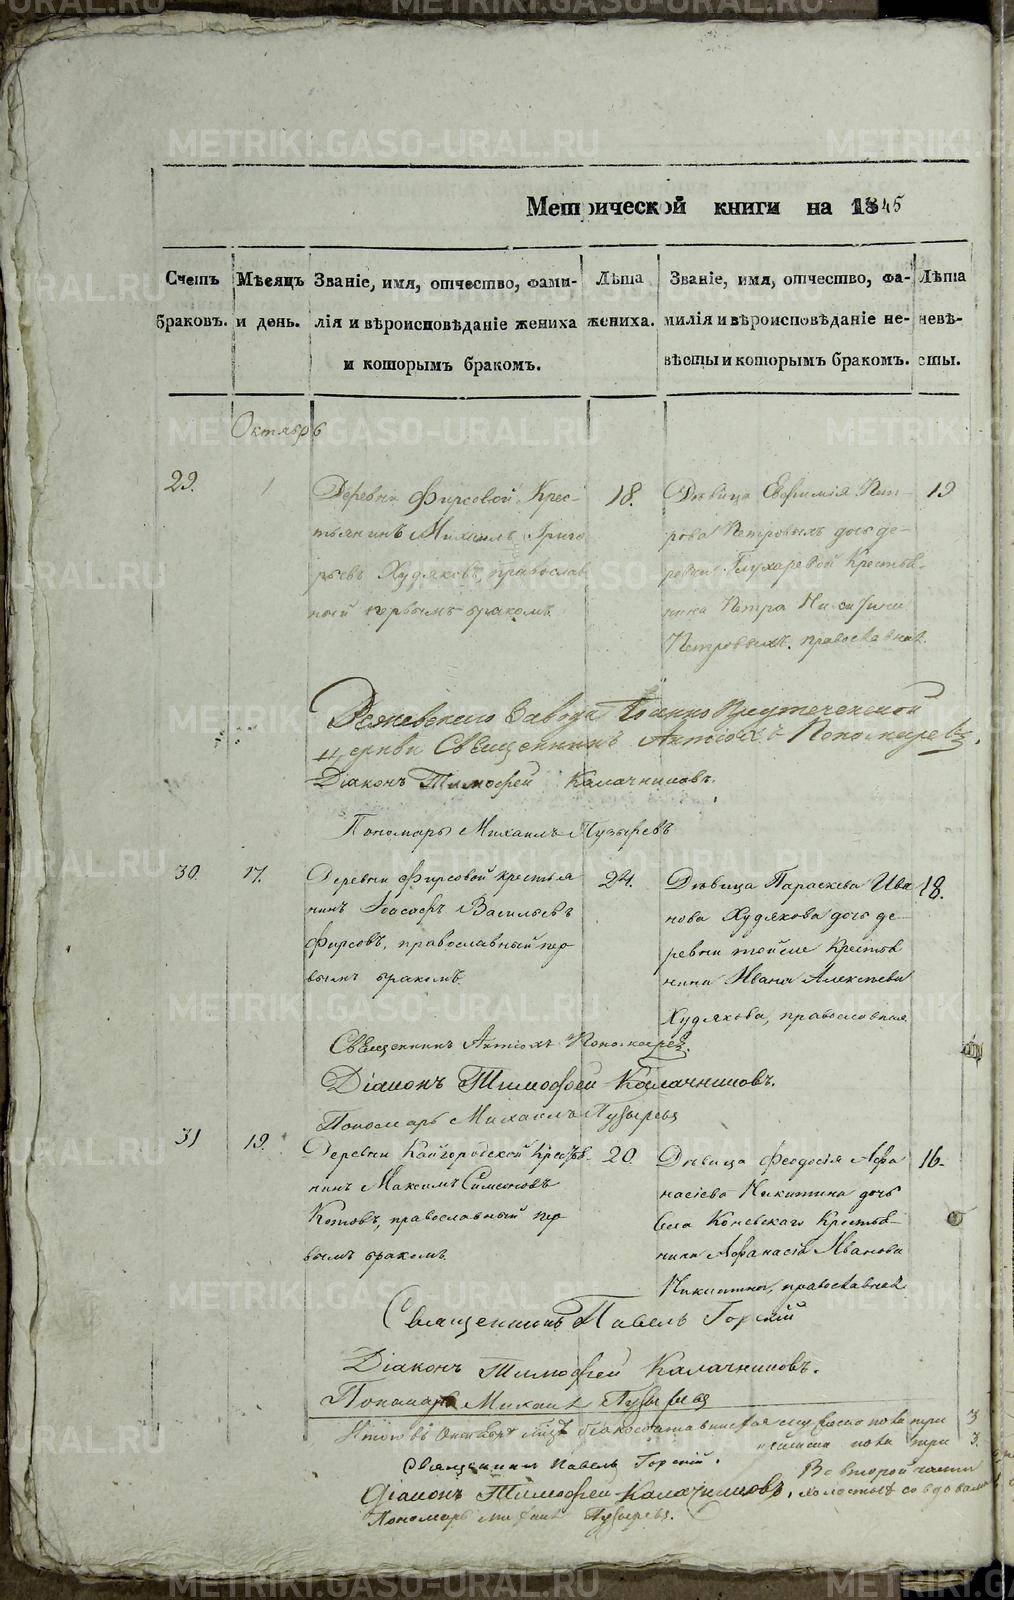 Метрической книги на 1845
Счетъ браковъ.
Мѣсяцъ и день.
Званіе, имя, отчество, фами-
лія и вѣроисповѣданіе жениха
и которымъ бракомъ.
Лѣта
жениха.
Званіе, имя, отчество, фа-
милія и вѣроисповѣданіе не-
вѣсты и которымъ бракомъ.
Лѣта
невѣ-
сты.
Октябрь
29.
1
Деревни Фирсовой Крес-
тьянинъ Михаилъ Григо
рьевъ Худяковъ, православ
ный первымъ бракомъ
18.
Дѣвица Евфимія Пет-
рова Петровыхъ дочь де-
ревни Глухаревой Крестья-
нина Петра
Петровыхъ. православная.
19
Режевскаго Завода Іоанно Предтеченской
церкви Священникъ Антіохъ Пономаревъ.
Діаконъ Тимофей Калачниковъ.
Пономарь Михаилъ Пузыревъ
30.
17.
Деревни Фирсовой крестья
нинъ Іоасафъ Васильевъ
Фирсовъ, православный пер
вымъ бракомъ.
24.
Дѣвица Параскева Ива
нова Худякова дочь де-
ревни тойже Крестья
нина Ивана Алексѣева
Худякова, православная
18.
Священникъ Антіохъ Пономаревъ.
Діаконъ Тимофей Калачниковъ.
Пономарь Михаилъ Пузыревъ
31
19.
Деревни Кайгородской Крестья-
нинъ Максимъ Симеоновъ
Котовъ, православный пер
вымъ бракомъ.
20.
Дѣвица Феодосія Афа
насіева Никитина дочь
села Коневскаго Крестья-
нина Афанасія Иванова
Никитина, православная
16.
Священникъ Павелъ Горскій
Діаконъ Тимофей Калачниковъ.
Пономарь Михаилъ Пузыревъ
Итого въ Октябрѣ мцѣ три 3
три 3.
Священникъ Павелъ Горскій.
Во второй части
Діаконъ Тимофей Калачниковъ. холостыхъ со вдовами
Пономарь Михаилъ Пузыревъ.
METRIKI.GASO-URAL.RU